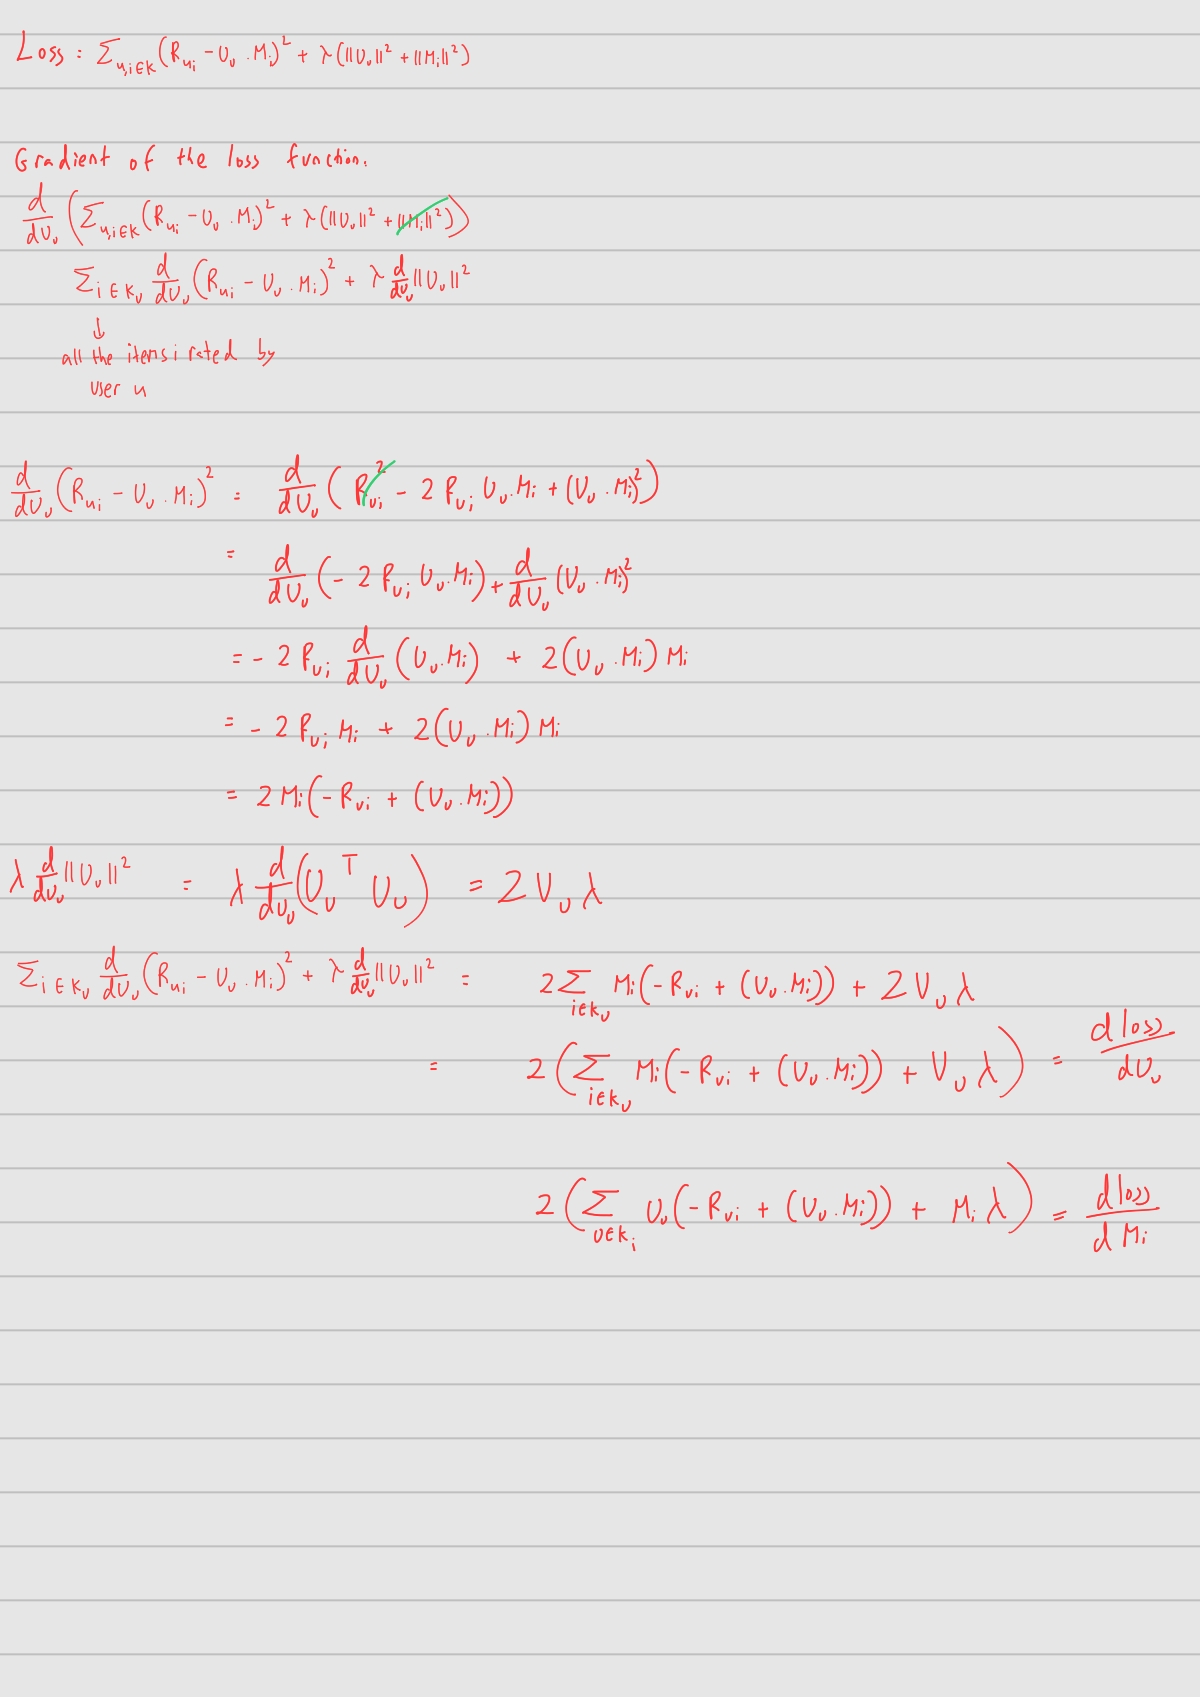 Loss : Σ_{u,i∈K} (R_{ui} - U_u . M_i)² + λ(||U_u||² + ||M_i||²)
Gradient of the loss function.
d/dU_u (Σ_{u,i∈K} (R_{ui} - U_u . M_i)² + λ(||U_u||² + ||M_i||²))
Σ_{i∈K_u} d/dU_u (R_{ui} - U_u . M_i)² + λ d/dU_u ||U_u||²
↓
all the items i rated by
user u
d/dU_u (R_{ui} - U_u . M_i)² = d/dU_u (R_{ui}² - 2 R_{ui} U_u . M_i + (U_u . M_i)²)
= d/dU_u (- 2 R_{ui} U_u . M_i) + d/dU_u (U_u . M_i)²
= - 2 R_{ui} d/dU_u (U_u . M_i) + 2(U_u . M_i) M_i
= - 2 R_{ui} M_i + 2(U_u . M_i) M_i
= 2 M_i(- R_{ui} + (U_u . M_i))
λ d/dU_u ||U_u||² = λ d/dU_u (U_u^T U_u) = 2 U_u λ
Σ_{i∈K_u} d/dU_u (R_{ui} - U_u . M_i)² + λ d/dU_u ||U_u||² = 2 Σ_{i∈K_u} M_i(- R_{ui} + (U_u . M_i)) + 2 U_u λ
= 2 (Σ_{i∈K_u} M_i(- R_{ui} + (U_u . M_i)) + U_u λ) = d loss/dU_u
2 (Σ_{u∈K_i} U_u(- R_{ui} + (U_u . M_i)) + M_i λ) = d loss/d M_i